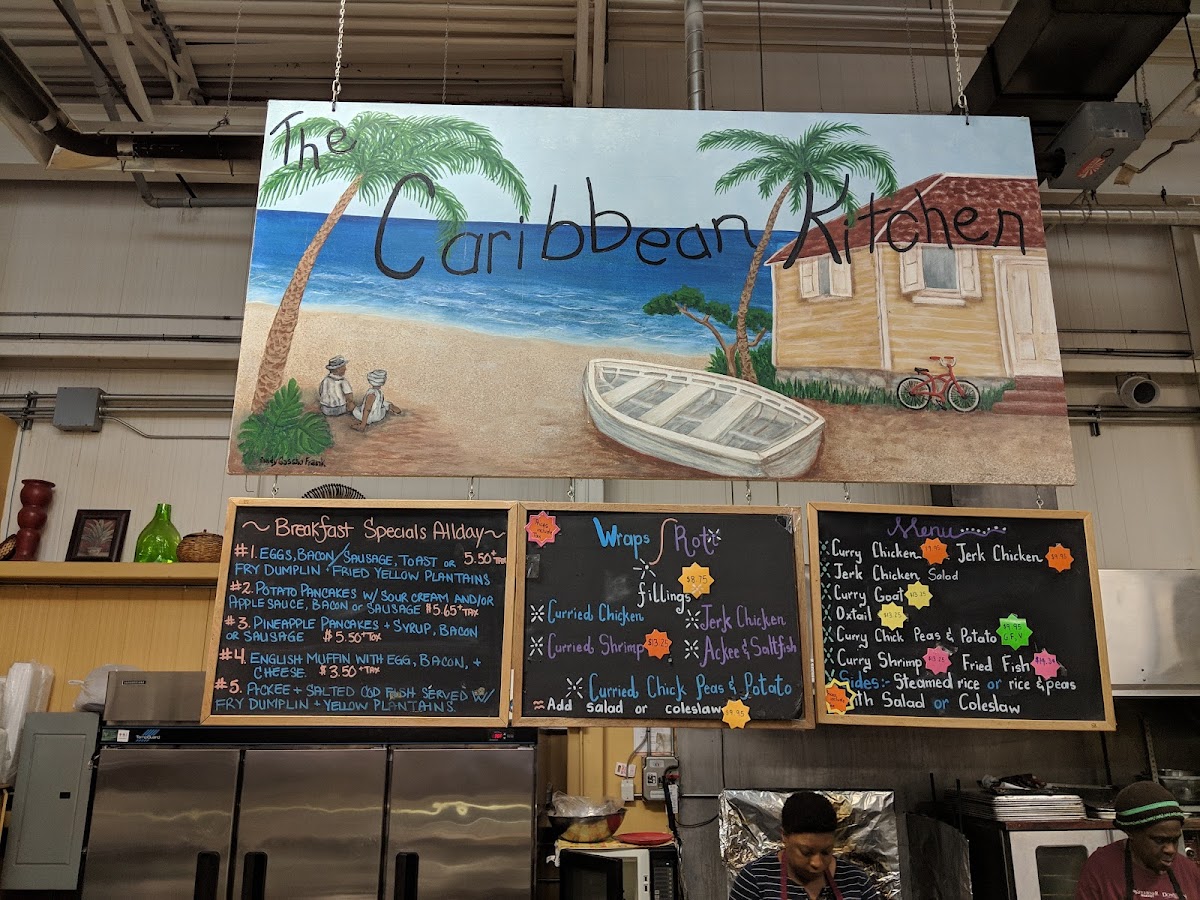 The Caribbean Kitchen
~ Breakfast Specials Allday ~
#1. EGGS, BACON / SAUSAGE, TOAST OR 5.50 +TAX
FRY DUMPLIN + FRIED YELLOW PLANTAINS
#2. POTATO PANCAKES W/ SOUR CREAM AND/OR
APPLE SAUCE, BACON OR SAUSAGE $5.65 +TAX
#3. PINEAPPLE PANCAKES + SYRUP, BACON
OR SAUSAGE $5.50 +TAX
#4. ENGLISH MUFFIN WITH EGG, BACON, +
CHEESE $3.50 +TAX
#5. ACKEE + SALTED COD FISH SERVED W/
FRY DUMPLIN + YELLOW PLANTAINS.
Wraps / Roti
$8.75
fillings
Curried Chicken
Jerk Chicken
Curried Shrimp $13.25
Ackee & Saltfish
Curried Chick Peas & Potato
Add salad or coleslaw
Menu
Curry Chicken Jerk Chicken
Jerk Chicken Salad
Curry Goat
Oxtail $13.25
Curry Chick Peas & Potato G.F, V
Curry Shrimp Fried Fish
Sides:- Steamed rice or rice & peas
Salad or Coleslaw